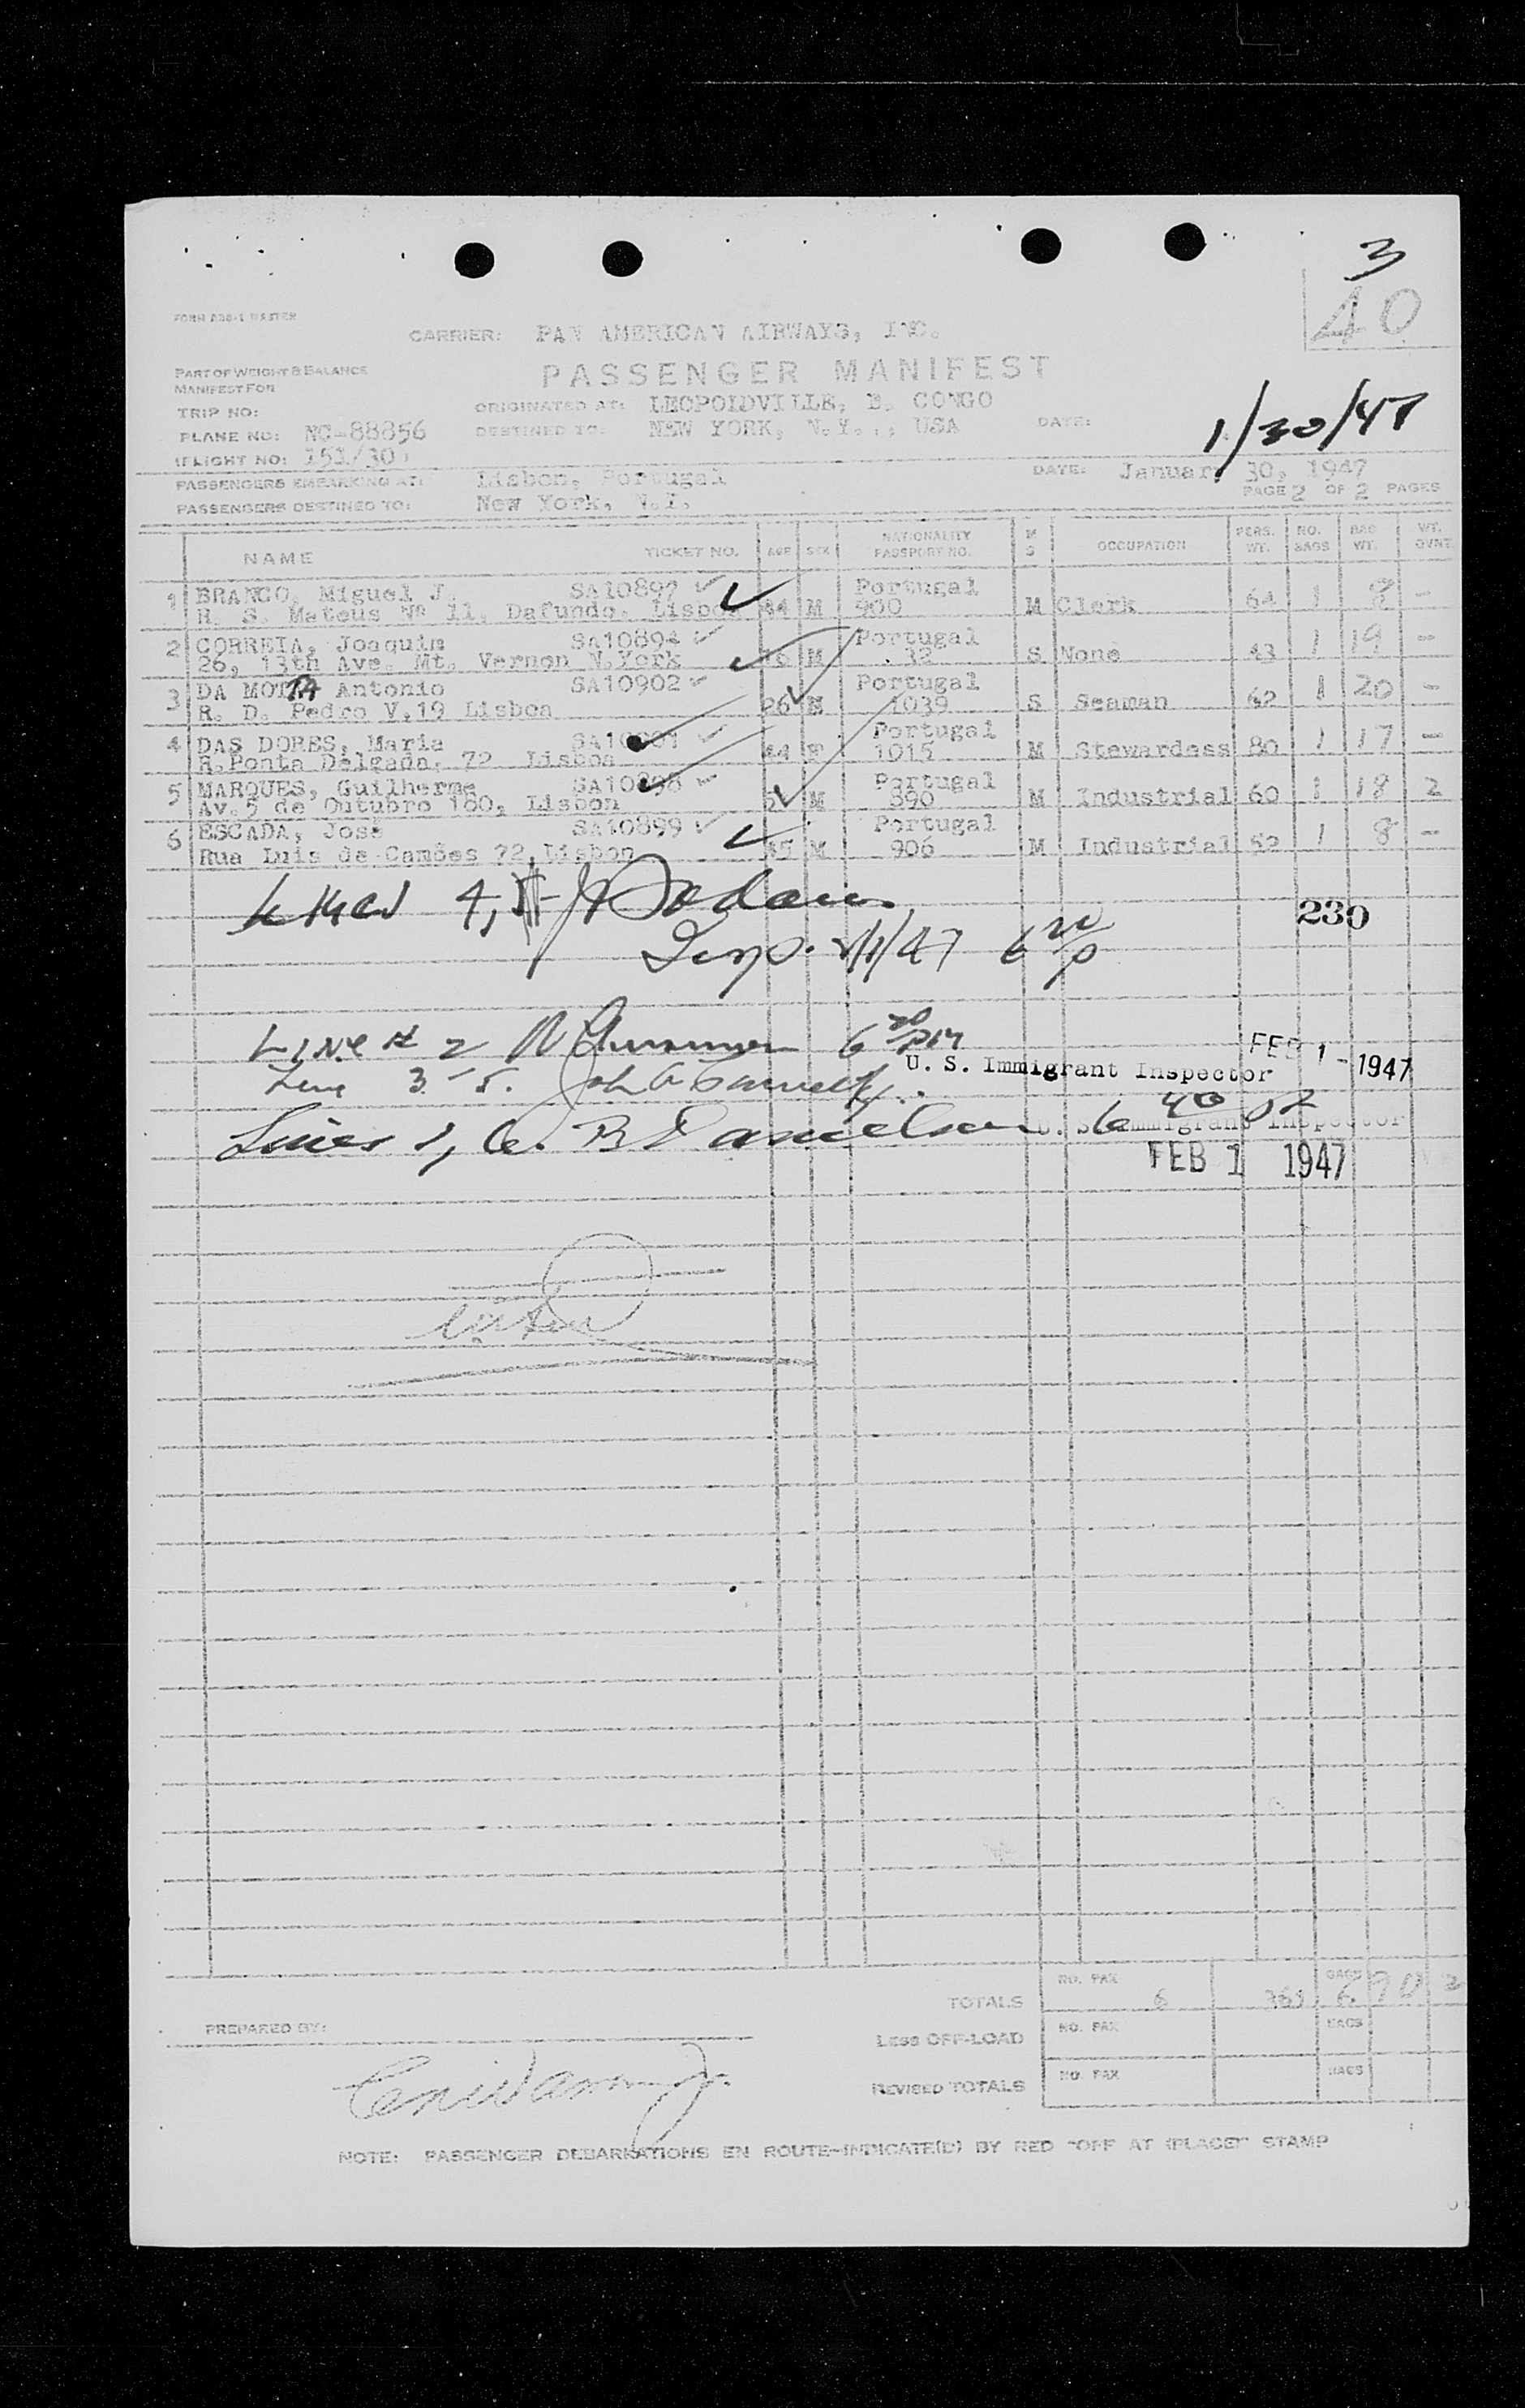 3
40
FORM
CARRIER: PAN AMERICAN AIRWAYS, INC.
PART OF WEIGHT & BALANCE
MANIFEST FOR
PASSENGER MANIFEST
TRIP NO:
ORIGINATED AT: LEOPOLDVILLE, B. CONGO
DATE: 1/30/47
PLANE NO: NC-88856
DESTINED TO: NEW YORK, N.Y., USA
FLIGHT NO: 151/30
PASSENGERS EMBARKING AT: Lisbon, Portugal
DATE: January 30, 1947
PASSENGERS DESTINED TO: New York, N.Y.
PAGE 2 OF 2 PAGES
NAME TICKET NO. AGE SEX NATIONALITY PASSPORT NO. M S OCCUPATION PERS. WT. NO. BAGS BAG WT. WT. OVNT
1 BRANCO, Miguel J. SA10897 Portugal
R. S. Mateus Nº 11, Dafundo, Lisbon 44 M 900 M Clerk 64 1 8 -
2 CORREIA, Joaquim SA10894 Portugal
26, 13th Ave. Mt. Vernon N.York M 32 S None 43 1 19 -
3 DA MOTTA Antonio SA10902 Portugal
R. D. Pedro V,19 Lisbon 26 M 1039 S Seaman 62 1 20 -
4 DAS DORES, Maria Portugal
R.Ponta Delgada, 72 Lisboa 44 F 1015 M Stewardess 80 1 17 -
5 MARQUES, Guilherme SA10898 Portugal
Av.5 de Outubro 180, Lisbon M 890 M Industrial 60 1 18 2
6 ESCADA, José SA10899 Portugal
Rua Luis de Camões 72, Lisbon 45 M 906 M Industrial 52 1 8 -
4,
230
Insp. 2/1/47 6
LINE # 2 6 30 PM
FEB 1 - 1947
U. S. Immigrant Inspector
Line 3 - 5.
Lines 1, 6. B Danielson 6 40
U. S. Immigrant Inspector
FEB 1 1947
TOTALS NO. PAX 6 BAGS 6 90 2
PREPARED BY:
LESS OFF-LOAD NO. PAX BAGS
REVISED TOTALS NO. PAX BAGS
NOTE: PASSENGER DEBARKATIONS EN ROUTE-INDICATE(D) BY RED "OFF AT (PLACE)" STAMP